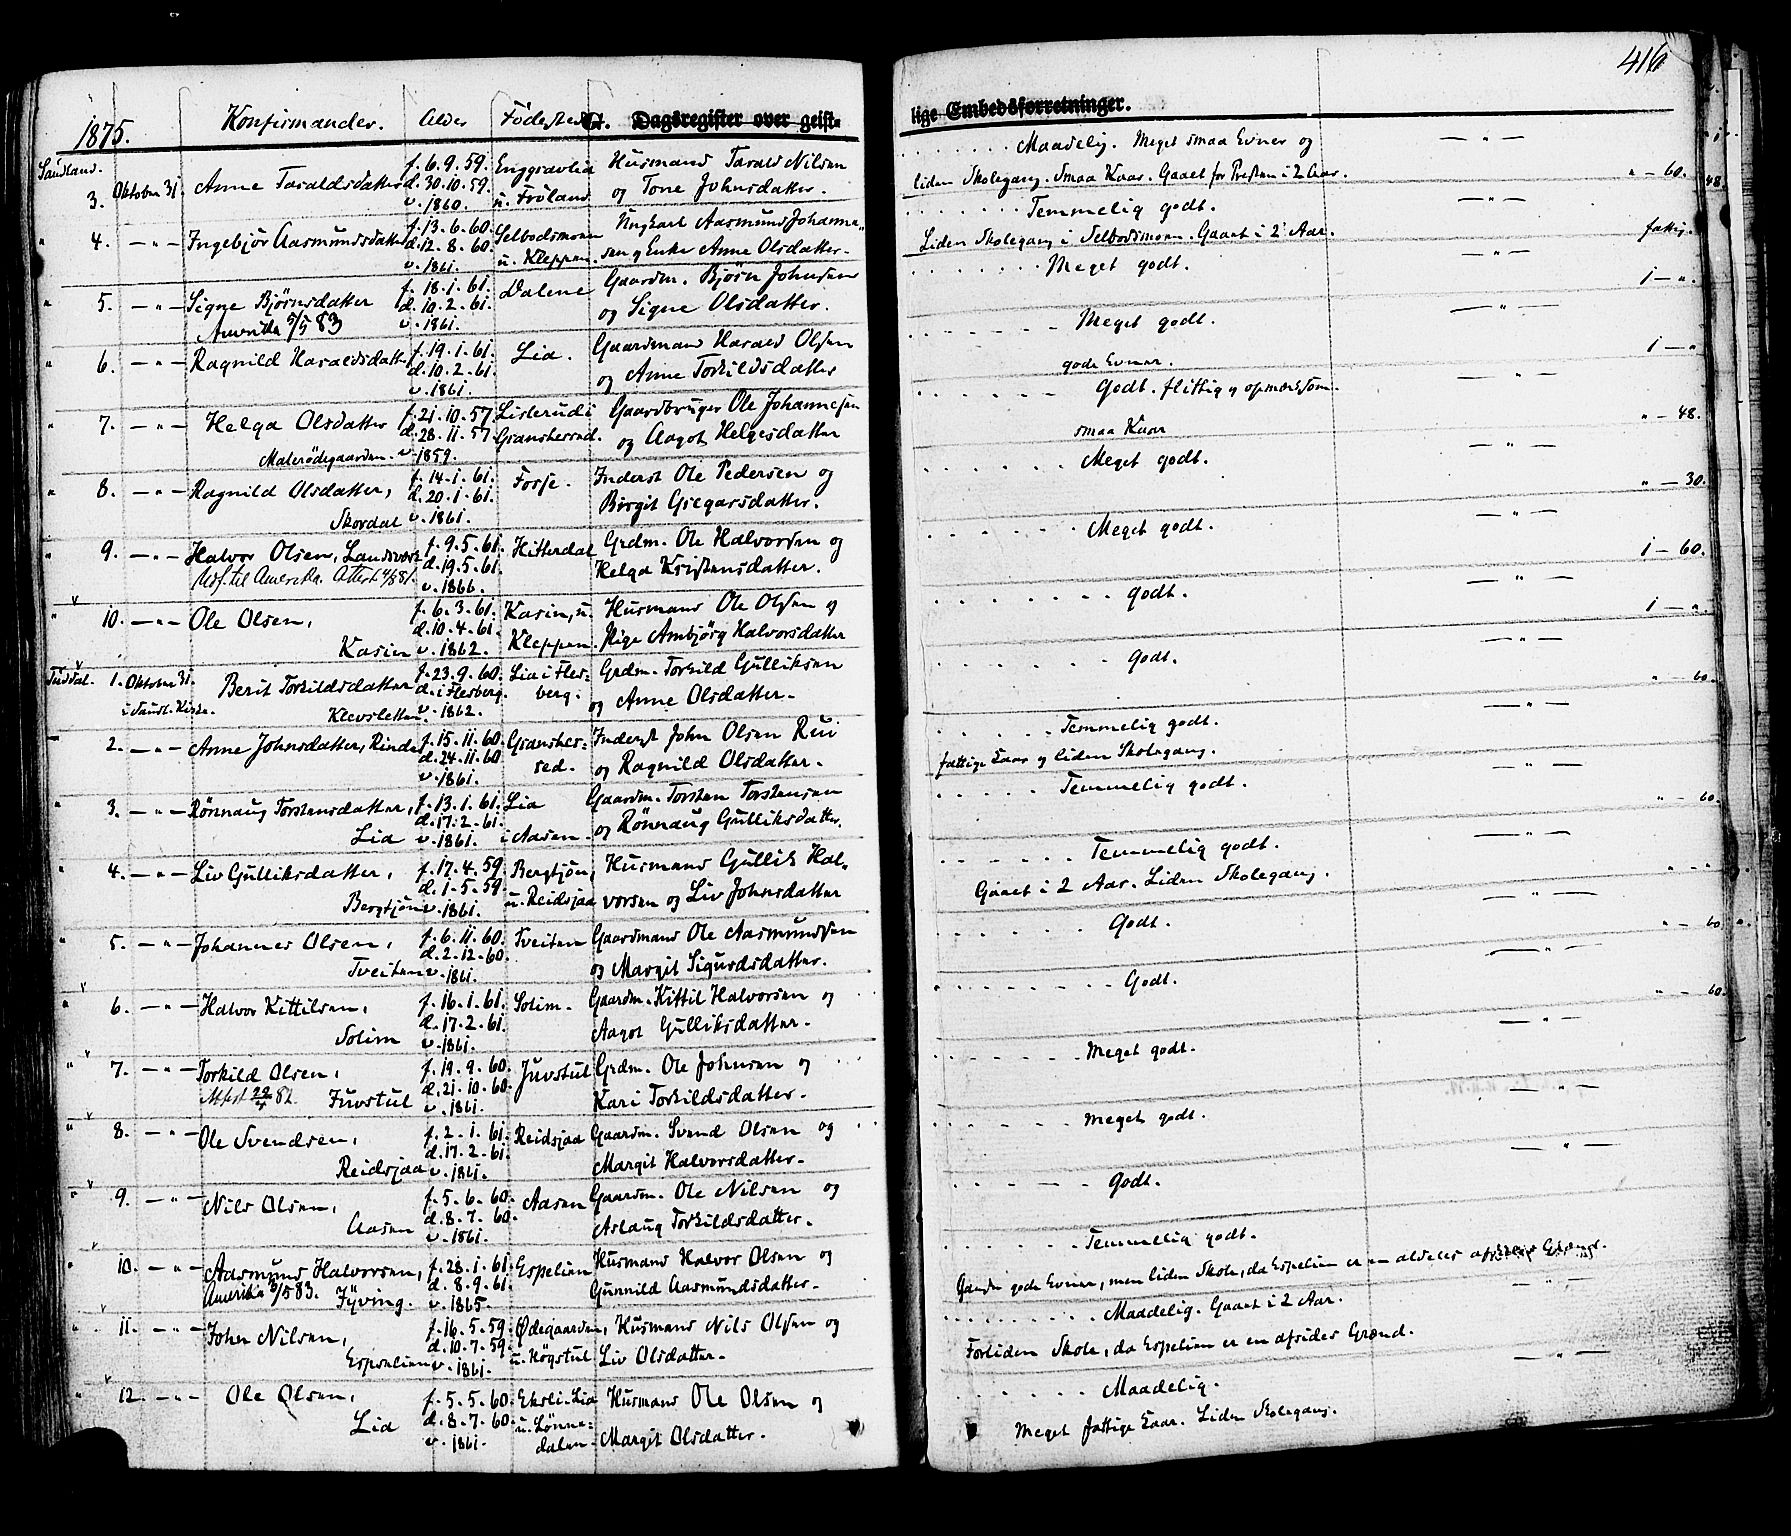 416
1875. Konfirmander. Alder Födested Ct. Dagsregister over geist= lige Embedsforretninger.
Saudland.
3. Oktober 31. Anne Taraldsdatter f. 6.9.59. Enggravlia Husmand Tarald Nilsen Maadelig. Meget smaa Evner og
d. 30.10.59. u. Fröland og Tone Johnsdatter. liden Skolegang. Smaa Kaar. Gaaet for Presten i 2 Aar. " - 60.
v. 1860.
4. Ingebjør Aasmundsdatter f. 13.6.60. Selbodsmoen Ungkarl Aasmund Johanne= Temmelig godt.
d. 12.8.60. u. Kleppen. sen og Enke Anne Olsdatter. Liden Skolegang i Selbodsmoen. Gaaet i 2 Aar. fattig.
v. 1861.
5. Signe Bjørnsdatter f. 18.1.61. Dalene Gaardm. Bjørn Johnsen Meget godt. 1 - ".
Amerika 5/5 83 d. 10.2.61. og Signe Olsdatter.
v. 1861.
6. Ragnild Haraldsdatter f. 19.1.61. Lia. Gaardmand Harald Olsen Meget godt. 1 - "
d. 10.2.61. og Anne Torkildsdatter gode Evner.
v. 1861.
7. Helga Olsdatter f. 21.10.57 Lislerud i Gaardbruger Ole Johannesen Godt. flittig og opmærksom. " - 48.
d. 28.11.57. Gransherred. og Aagot Helgesdatter smaa Kaar
Malerødegaarden. v. 1859.
8. Ragnild Olsdatter, f. 14.1.61. Forse. Inderst Ole Pedersen og Meget godt. " - 30.
d. 20.1.61. Birgit Gregarsdatter.
Skordal v. 1861.
9. Halvor Olsen, Landsverk f. 9.5.61. Hitterdal Grdm. Ole Halvorsen og Meget godt. 1 - 60.
Udf. til Amerika. Attest 4/3 81. d. 19.5.61. Helga Kristensdatter.
v. 1866.
10. Ole Olsen, f. 6.3.61. Kasin, u. Husmand Ole Olsen og godt. 1 - "
d. 10.4.61. Kleppen. Pige Ambjørg Halvorsdatter
Kasien v. 1862.
Tuddal. 1. Oktober 31. Berit Torkildsdatter f. 23.9.60. Lia i Fles= Grdm. Torkild Gulliksen Godt. " - 60.
i Saudl. Kirke. d. i Flesberg. berg. og Anne Olsdatter.
Klevsletten. v. 1862.
2. Anne Johnsdatter, Rinde f. 15.11.60. Gransher= Inderst John Olsen Rui Temmelig godt.
d. 24.11.60. red. og Ragnild Olsdatter. fattige Kaar og liden Skolegang.
v. 1861.
3. Rönnaug Torstensdatter, f. 13.1.61. Lia Gaardm. Torsten Torstensen Temmelig godt. " - 60.
d. 17.2.61. i Aasen. og Rönnaug Gulliksdatter.
Lia v. 1861.
4. Liv Gulliksdatter, f. 17.4.59. Bergtjön, Husmand Gullik Hal= Temmelig godt.
d. 1.5.59. u. Reidsjaa vorsen og Liv Johnsdatter Gaaet i 2 Aar. Liden Skolegang.
Bergtjön v. 1861.
5. Johannes Olsen, f. 6.11.60. Tveiten Gaardmand Ole Aasmundsen Godt. " - 60
d. 2.12.60. og Margit Sigurdsdatter.
Tveiten v. 1861.
6. Halvor Kittilsen, f. 16.1.61. Solim. Gaardm. Kittil Halvorsen og Godt. " - 60.
d. 17.2.61. Aagot Gulliksdatter.
Solim v. 1861.
7. Torkild Olsen, f. 19.9.60. Juvstul Grdm. Ole Johnsen og Meget godt.
d. 21.10.60. Kari Torkildsdatter.
Juvstul v. 1861.
8. Ole Svendsen, f. 2.1.61. Reidsjaa Gaardm. Svend Olsen og Meget godt.
d. 17.2.61. Margit Halvorsdatter.
Reidsjaa v. 1861.
9. Nils Olsen, f. 5.6.60. Aasen Gaardm. Ole Nilsen og Godt.
d. 8.7.60. Aslaug Torkildsdatter.
Aasen v. 1861.
10. Aasmund Halvorsen, f. 28.1.61. Espelien Husmand Halvor Olsen og Temmelig godt.
Amerika 5/5 83. d. 8.9.61. Gunnild Aasmundsdatter. gode Evner, men liden Skole, da Espelien er en aldeles afsides Grænd.
Jyving. v. 1865.
11. John Nilsen, f. 16.5.59. Ødegaarden, Husmand Nils Olsen og Maadelig. Gaaet i 2 Aar.
d. 10.7.59. u. Högstul Liv Olsdatter. For liden Skole, da Espelien er en afsides Grænd.
Espelien v. 1861.
12. Ole Olsen, f. 5.5.60. Ekoli-Lia Husmand Ole Olsen og Maadelig.
d. 8.7.60. u. Lönne= Margit Olsdatter. Meget fattige Kaar. Liden Skolegang.
Lia v. 1861. dalen.